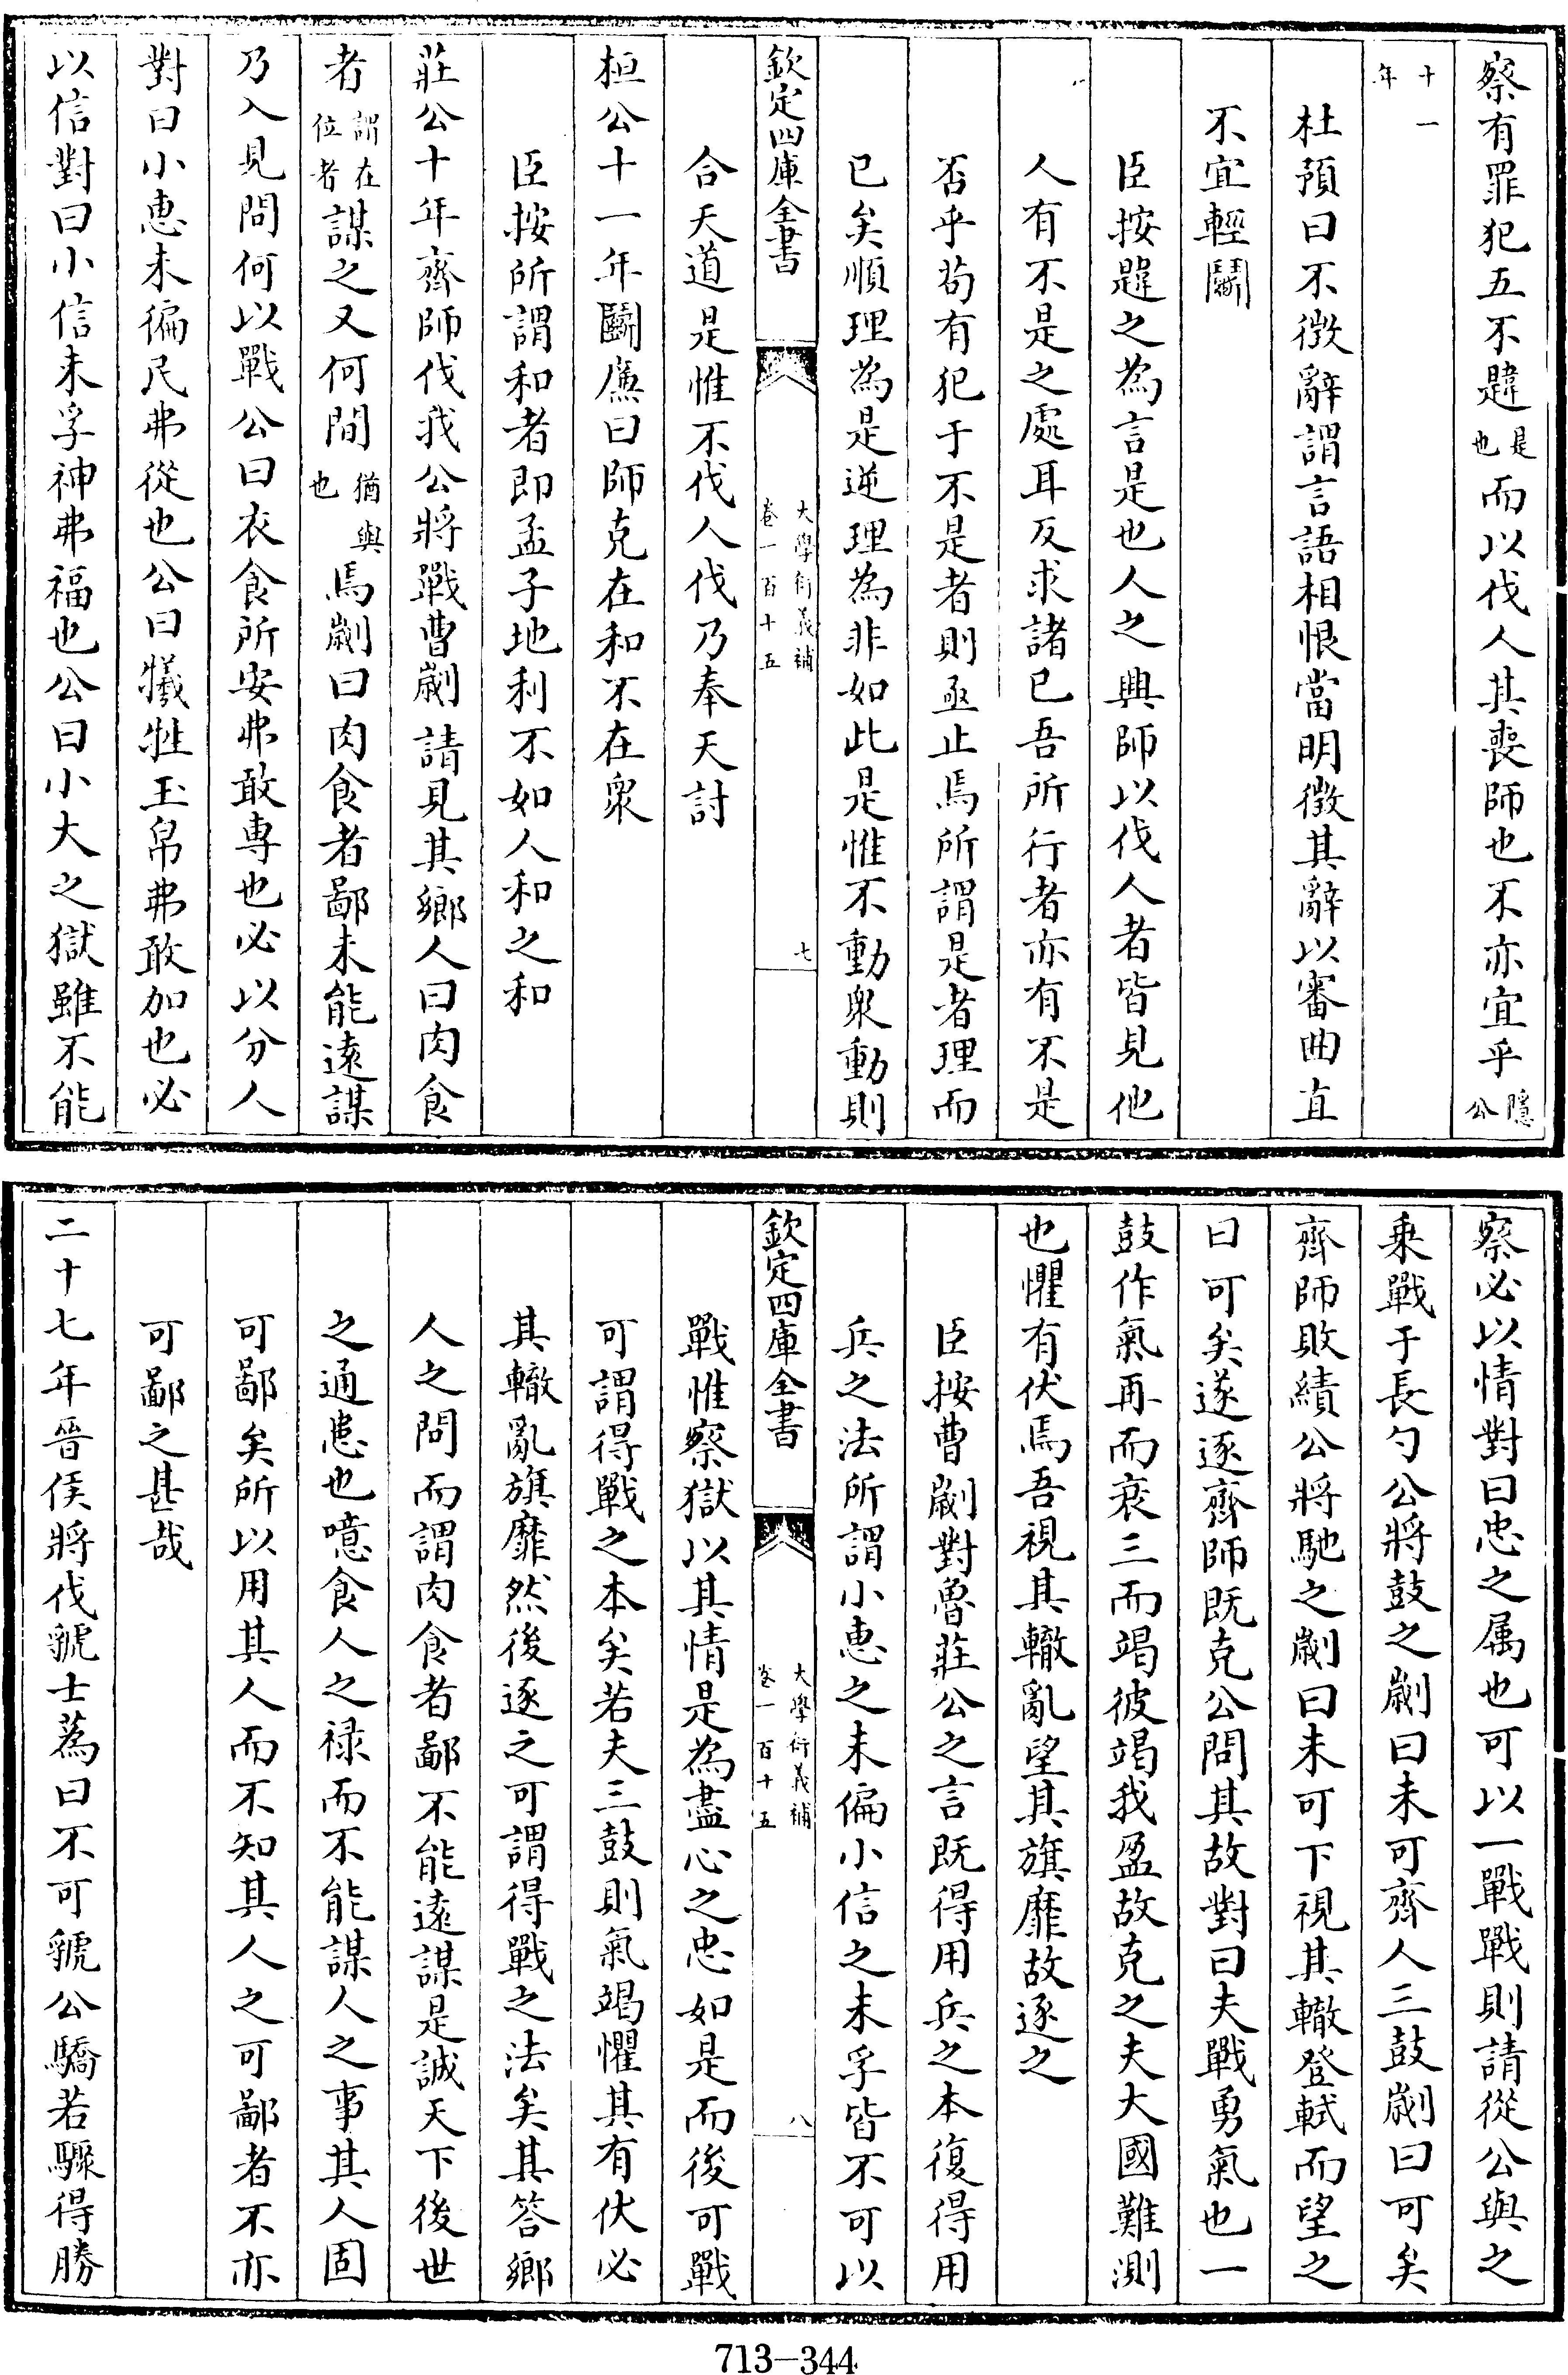 察有罪犯五不韙是也而以伐人其喪師也不亦宜乎隱公
十一年
杜預曰不徴辭謂言語相恨當明徴其辭以審曲直
不宜輕鬭
臣按韙之為言是也人之興師以伐人者皆見他
人有不是之處耳反求諸已吾所行者亦有不是
否乎茍有犯于不是者則亟止焉所謂是者理而
已矣順理為是逆理為非如此是惟不動衆動則
欽定四庫全書
大學衍義補
卷一百十五
七
合天道是惟不伐人伐乃奉天討
桓公十一年鬭亷曰師克在和不在衆
臣按所謂和者即孟子地利不如人和之和
莊公十年齊師伐我公將戰曹劌請見其鄉人曰肉食
者謂在位者謀之又何間猶與也焉劌曰肉食者鄙未能遠謀
乃入見問何以戰公曰衣食所安弗敢専也必以分人
對曰小惠未徧民弗從也公曰犧牲玉帛弗敢加也必
以信對曰小信未孚神弗福也公曰小大之獄雖不能
察必以情對曰忠之属也可以一戰戰則請從公與之
乗戰于長勺公將鼓之劌曰未可齊人三鼓劌曰可矣
齊師敗績公將馳之劌曰未可下視其轍登軾而望之
曰可矣遂逐齊師既克公問其故對曰夫戰勇氣也一
鼓作氣再而衰三而竭彼竭我盈故克之夫大國難測
也懼有伏焉吾視其轍亂望其旗靡故逐之
臣按曹劌對魯莊公之言既得用兵之本復得用
兵之法所謂小惠之未偏小信之未孚皆不可以
欽定四庫全書
大學衍義補
卷一百十五
八
戰惟察獄以其情是為盡心之忠如是而後可戰
可謂得戰之本矣若夫三鼓則氣竭懼其有伏必
其轍亂旗靡然後逐之可謂得戰之法矣其答鄉
人之問而謂肉食者鄙不能遠謀是誠天下後世
之通患也噫食人之禄而不能謀人之事其人固
可鄙矣所以用其人而不知其人之可鄙者不亦
可鄙之甚哉
二十七年晉侯將伐虢士蒍曰不可虢公驕若驟得勝
713-344